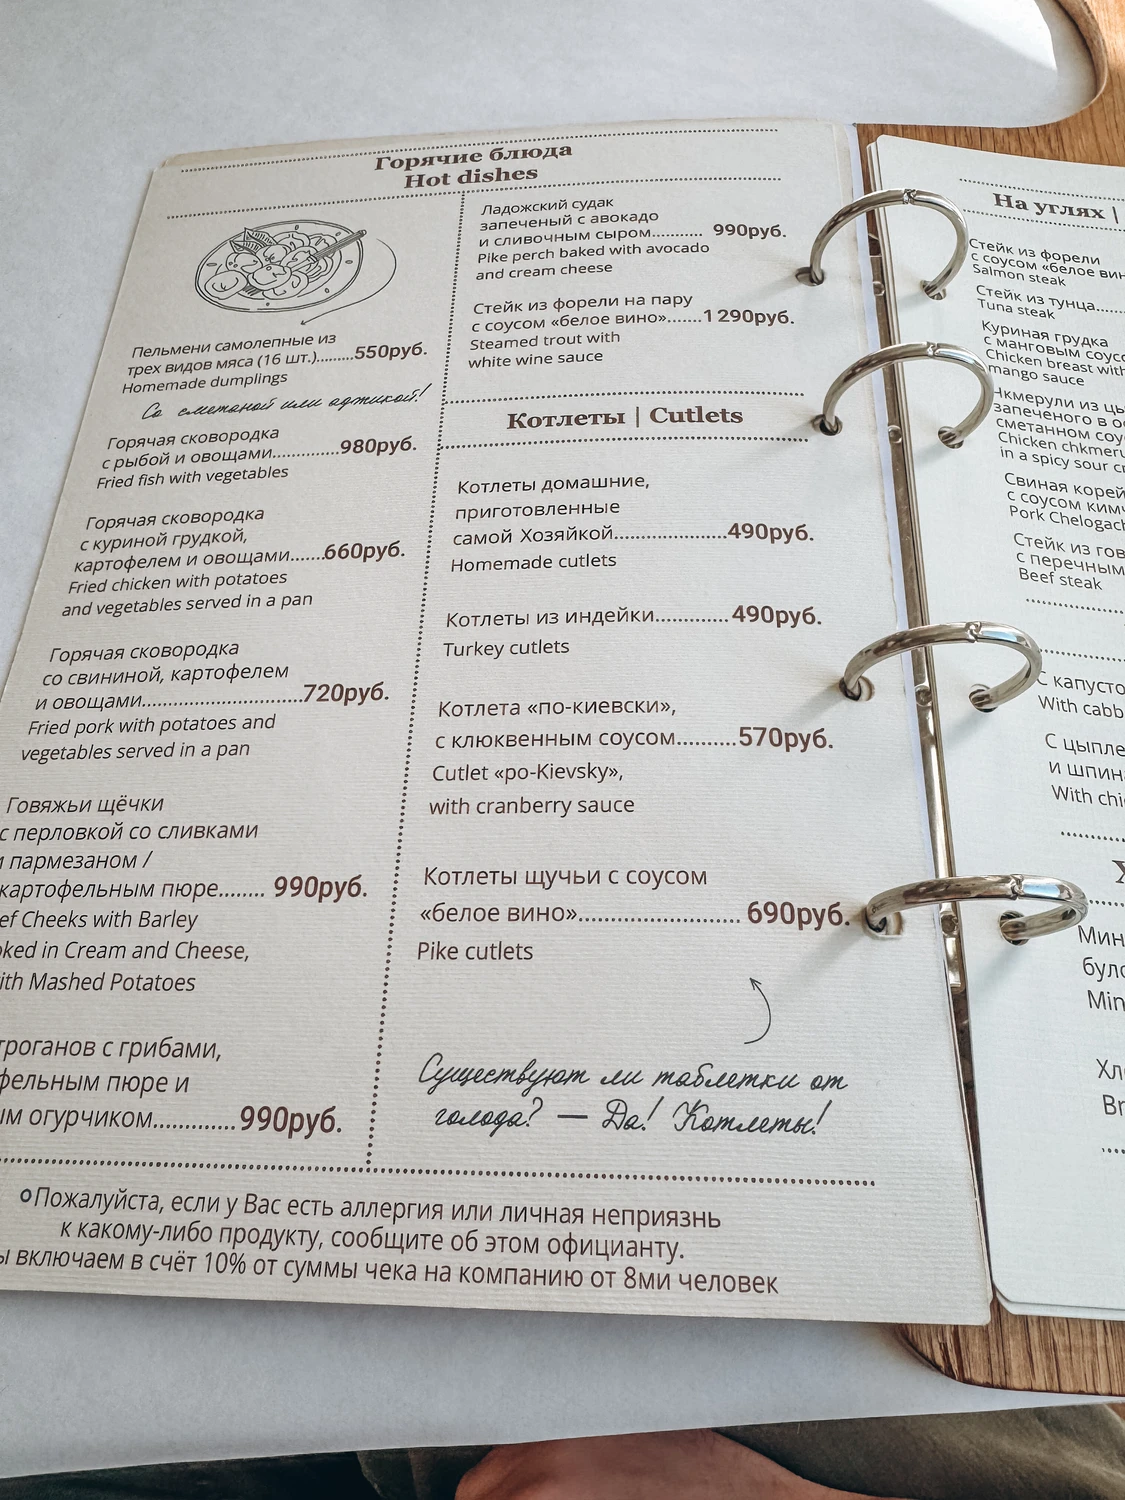 Горячие блюда
Hot dishes
Пельмени самолепные из
трех видов мяса (16 шт.).........550руб.
Homemade dumplings
Со сметаной или аджикой!
Горячая сковородка
с рыбой и овощами...............980руб.
Fried fish with vegetables
Горячая сковородка
с куриной грудкой,
картофелем и овощами.......660руб.
Fried chicken with potatoes
and vegetables served in a pan
Горячая сковородка
со свининой, картофелем
и овощами..............................720руб.
Fried pork with potatoes and
vegetables served in a pan
Говяжьи щёчки
с перловкой со сливками
и пармезаном /
картофельным пюре........ 990руб.
ef Cheeks with Barley
oked in Cream and Cheese,
ith Mashed Potatoes
троганов с грибами,
фельным пюре и
ым огурчиком.............990руб.
Ладожский судак
запеченый с авокадо
и сливочным сыром.......... 990руб.
Pike perch baked with avocado
and cream cheese
Стейк из форели на пару
с соусом «белое вино».......1 290руб.
Steamed trout with
white wine sauce
Котлеты | Cutlets
Котлеты домашние,
приготовленные
самой Хозяйкой.......................490руб.
Homemade cutlets
Котлеты из индейки...............490руб.
Turkey cutlets
Котлета «по-киевски»,
с клюквенным соусом..........570руб.
Cutlet «po-Kievsky»,
with cranberry sauce
Котлеты щучьи с соусом
«белое вино»........................... 690руб.
Pike cutlets
Существуют ли таблетки от
голода? — Да! Котлеты!
Пожалуйста, если у Вас есть аллергия или личная неприязнь
к какому-либо продукту, сообщите об этом официанту.
ы включаем в счёт 10% от суммы чека на компанию от 8ми человек
На углях |
Стейк из форели
с соусом «белое вин
Salmon steak
Стейк из тунца.......
Tuna steak
Куриная грудка
с манговым соусо
Chicken breast with
mango sauce
Чкмерули из цы
запеченого в о
сметанном соу
Chicken chkmeru
in a spicy sour cr
Свиная корей
с соусом кимч
Pork Chelogach
Стейк из гов
с перечным
Beef steak
С капусто
With cabb
С цыпле
и шпина
With chi
Х
Мин
було
Min
Хл
Br